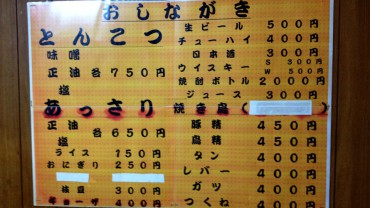 おしながき
とんこつ
味噌
正油 各750円
塩
あっさり
正油 各650円
塩
ライス 150円
おにぎり 250円
枝豆 300円
ギョーザ 400円
生ビール 500円
チューハイ 400円
日本酒 300円
ウイスキー S 300円
W 500円
焼酎ボトル 2000円
ジュース 300円
焼き鳥( )
豚精 450円
鳥精 450円
タン 400円
レバー 400円
ガツ 400円
つくね 400円